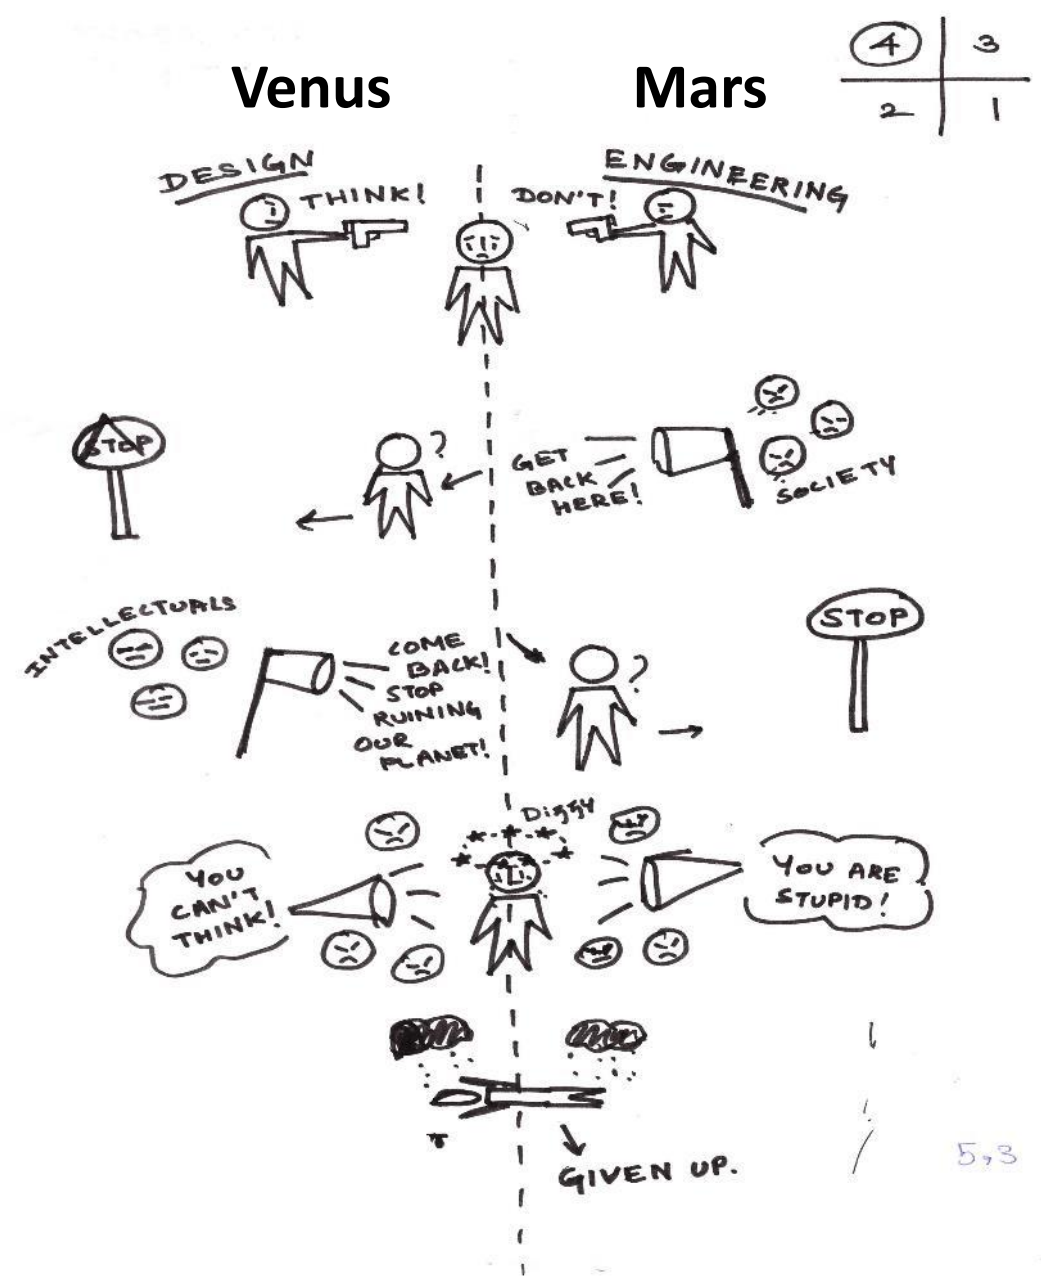 Venus
Mars
4
3
2
1
DESIGN
ENGINEERING
THINK!
DON'T!
STOP
?
GET
BACK
HERE!
SOCIETY
INTELLECTUALS
COME
BACK!
STOP
RUINING
OUR
PLANET!
?
STOP
Dizzy
YOU
CAN'T
THINK!
YOU ARE
STUPID!
GIVEN UP.
5,3